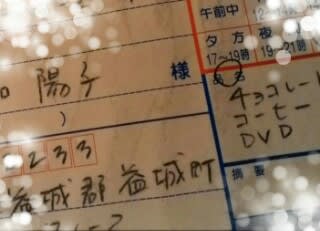 陽子 様
)
233
益城郡益城町
午前中
夕方 夜
17〜19時 19〜21時
品名
チョコレート
コーヒー
DVD
摘要